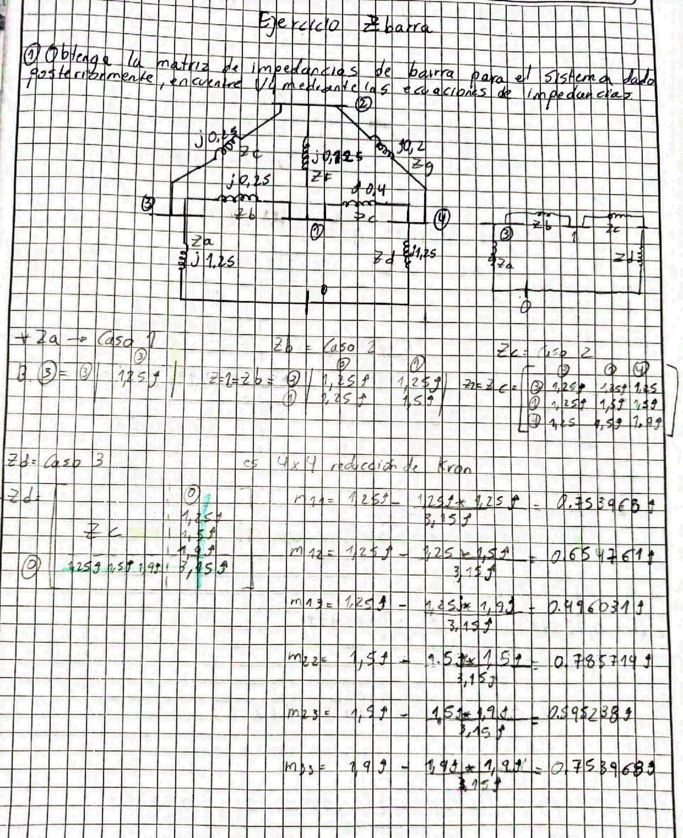 Ejercicio Zbarra
① Obtenga la matriz de impedancias de barra para el sistema dado
posteriormente, encuentre V4 mediante las ecuaciones de impedancias
②
j0,25
Zc
j0,125
Zf
j0,2
Zg
j0,25
Zb
j0,4
Zc
③
①
④
Za
j1,25
Zd
j1,25
0
③
Zb
1
Zc
Za
Zd
0
*Za → Caso 1
③
③ = ③ | 1,25j |
Zb = Caso 2
③ ①
Z=1=Zb = ③ | 1,25j 1,25j |
① | 1,25j 1,5j |
Zc = Caso 2
③ ① ④
Z2=Zc = ③ 1,25j 1,25j 1,25
① 1,25j 1,5j 1,5j
④ 1,25 1,5j 1,9j
Zd = Caso 3 es 4x4 reducción de Kron
Zd=
⓪
1,25j
Zc 1,5j
1,9j
⓪ 1,25j 1,5j 1,9j 3,15j
m11 = 1,25j - 1,25j * 1,25j / 3,15j = 0.753968j
m12 = 1,25j - 1,25 * 1,5j / 3,15j = 0.654761j
m13 = 1,25j - 1,25j * 1,9j / 3,15j = 0.496031j
m22 = 1,5j - 1.5j * 1,5j / 3,15j = 0.785714j
m23 = 1,5j - 1,5j * 1,9j / 3,15j = 0.595238j
m33 = 1,9j - 1,9j * 1,9j / 3,15j = 0.753968j